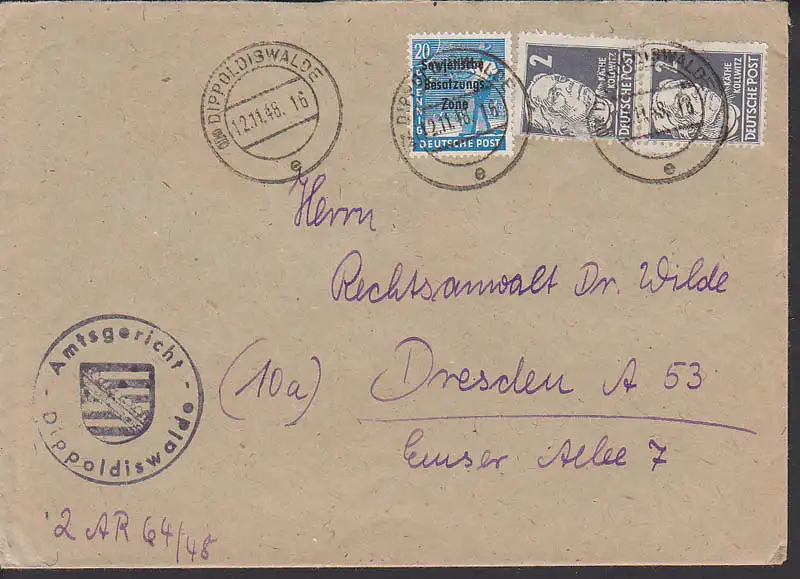 DIPPOLDISWALDE
12.11.48. 16
e
20
PFENNIG
Sowjetische
Besatzungs-
Zone
DEUTSCHE POST
12.11.48. 16
e
2
KÄTHE
KOLLWITZ
DEUTSCHE POST
2
KÄTHE
KOLLWITZ
DEUTSCHE POST
e
Herrn
Rechtsanwalt Dr. Wilde
(10a) Dresden A 53
Emser Allee 7
Amtsgericht
Dippoldiswalde
2 AR 64/48